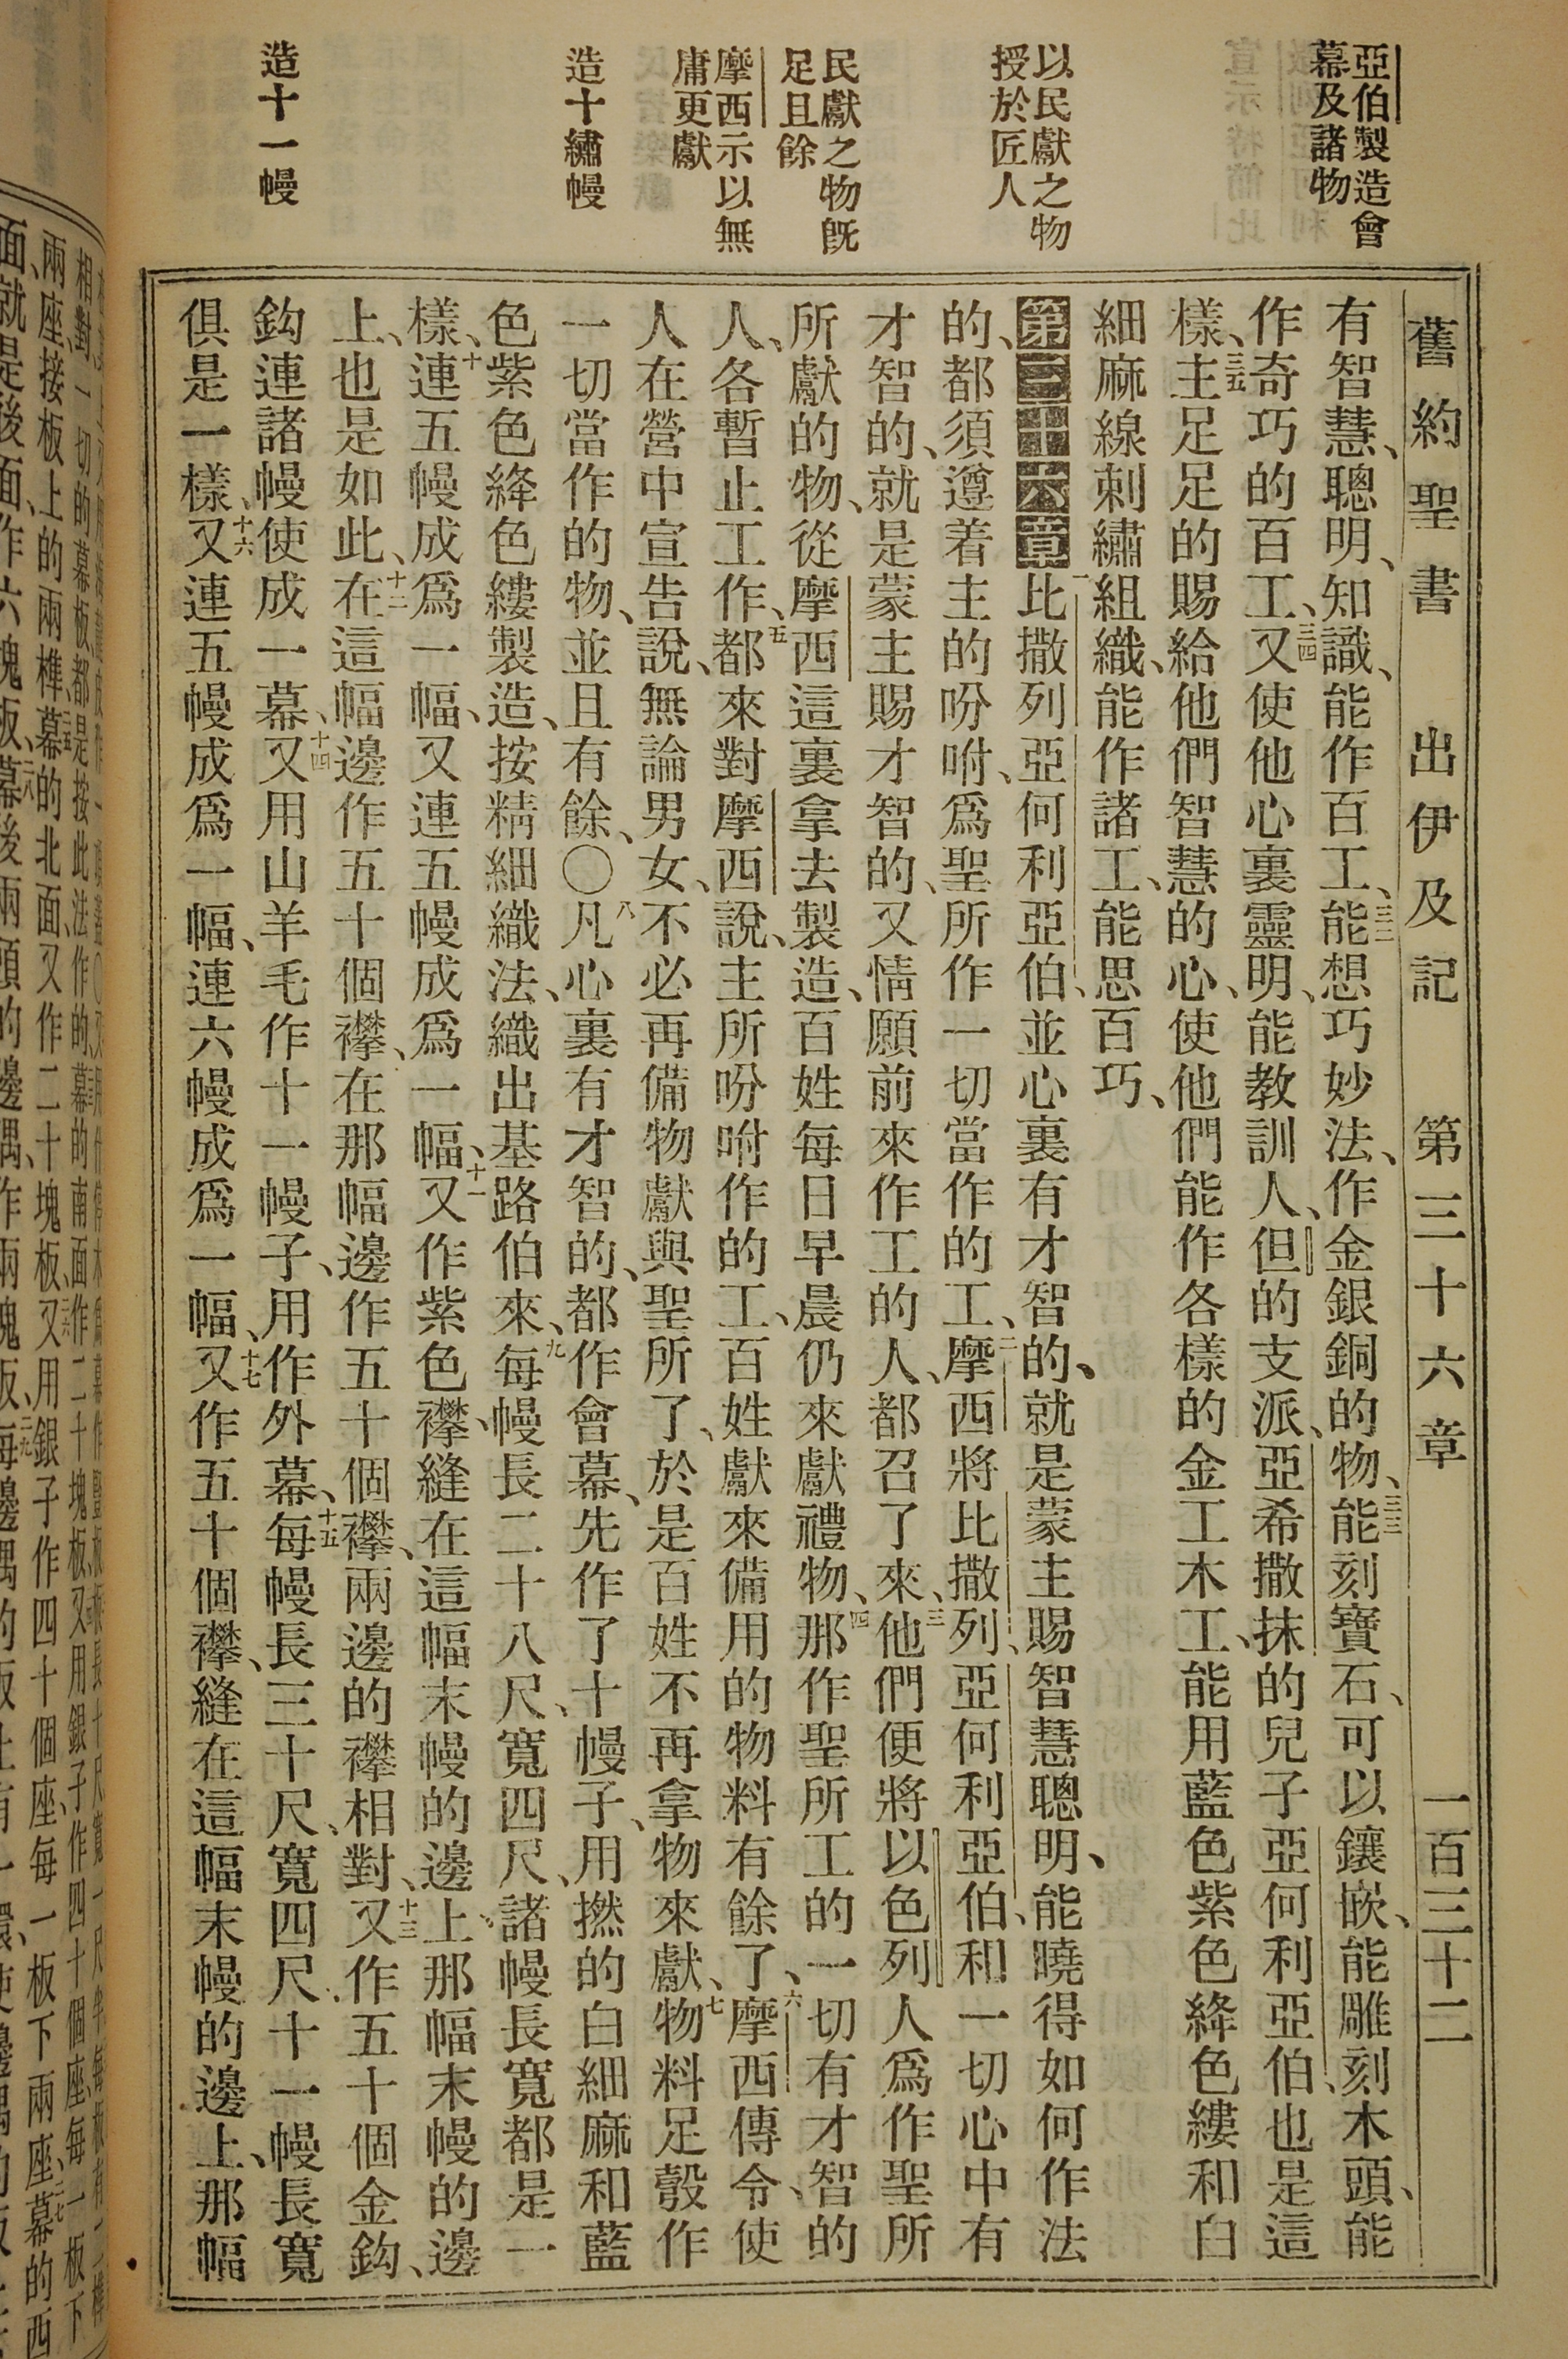 舊約聖書　出伊及記　第三十六章　一百三十二
亞伯製造會
幕及諸物
以民獻之物
授於匠人
民獻之物既
足且餘
摩西示以無
庸更獻
造十繡幔
造十一幔
有智慧、聰明、知識、能作百工、三二能想巧妙法、作金銀銅的物、三三能刻寶石、可以鑲嵌、能雕刻木頭、能
作奇巧的百工、三四又使他心裏靈明、能教訓人、但的支派、亞希撒抹的兒子亞何利亞伯、也是這
樣、三五主足足的賜給他們智慧的心、使他們能作各樣的金工木工、能用藍色紫色絳色縷和白
細麻線刺繡組織、能作諸工、能思百巧、
第三十六章一比撒列亞何利亞伯、並心裏有才智的、就是蒙主賜智慧聰明、能曉得如何作法
的、都須遵着主的吩咐、爲聖所作一切當作的工、二摩西將比撒列、亞何利亞伯、和一切心中有
才智的、就是蒙主賜才智的、又情願前來作工的人、都召了來、三他們便將以色列人爲作聖所
所獻的物、從摩西這裏拿去製造、百姓每日早晨仍來獻禮物、四那作聖所工的一切有才智的
人、各暫止工作、五都來對摩西說、主所吩咐作的工、百姓獻來備用的物料有餘了、六摩西傳令、使
人在營中宣告說、無論男女、不必再備物獻與聖所了、於是百姓不再拿物來獻、七物料足彀作
一切當作的物、並且有餘、〇八凡心裏有才智的、都作會幕、先作了十幔子、用撚的白細麻和藍
色紫色絳色縷製造、按精細織法、織出基路伯來、九每幔長二十八尺、寬四尺、諸幔長寬都是一
樣、十連五幔成爲一幅、又連五幔成爲一幅、十一又作紫色襻、縫在這幅末幔的邊上、那幅末幔的邊
上、也是如此、十二在這幅邊作五十個襻、在那幅邊作五十個襻、兩邊的襻相對、十三又作五十個金鈎、
鈎連諸幔使成一幕、十四又用山羊毛作十一幔子、用作外幕、十五每幔長三十尺、寬四尺、十一幔長寬
俱是一樣、十六又連五幔成爲一幅、連六幔成爲一幅、十七又作五十個襻、縫在這幅末幔的邊上、那幅